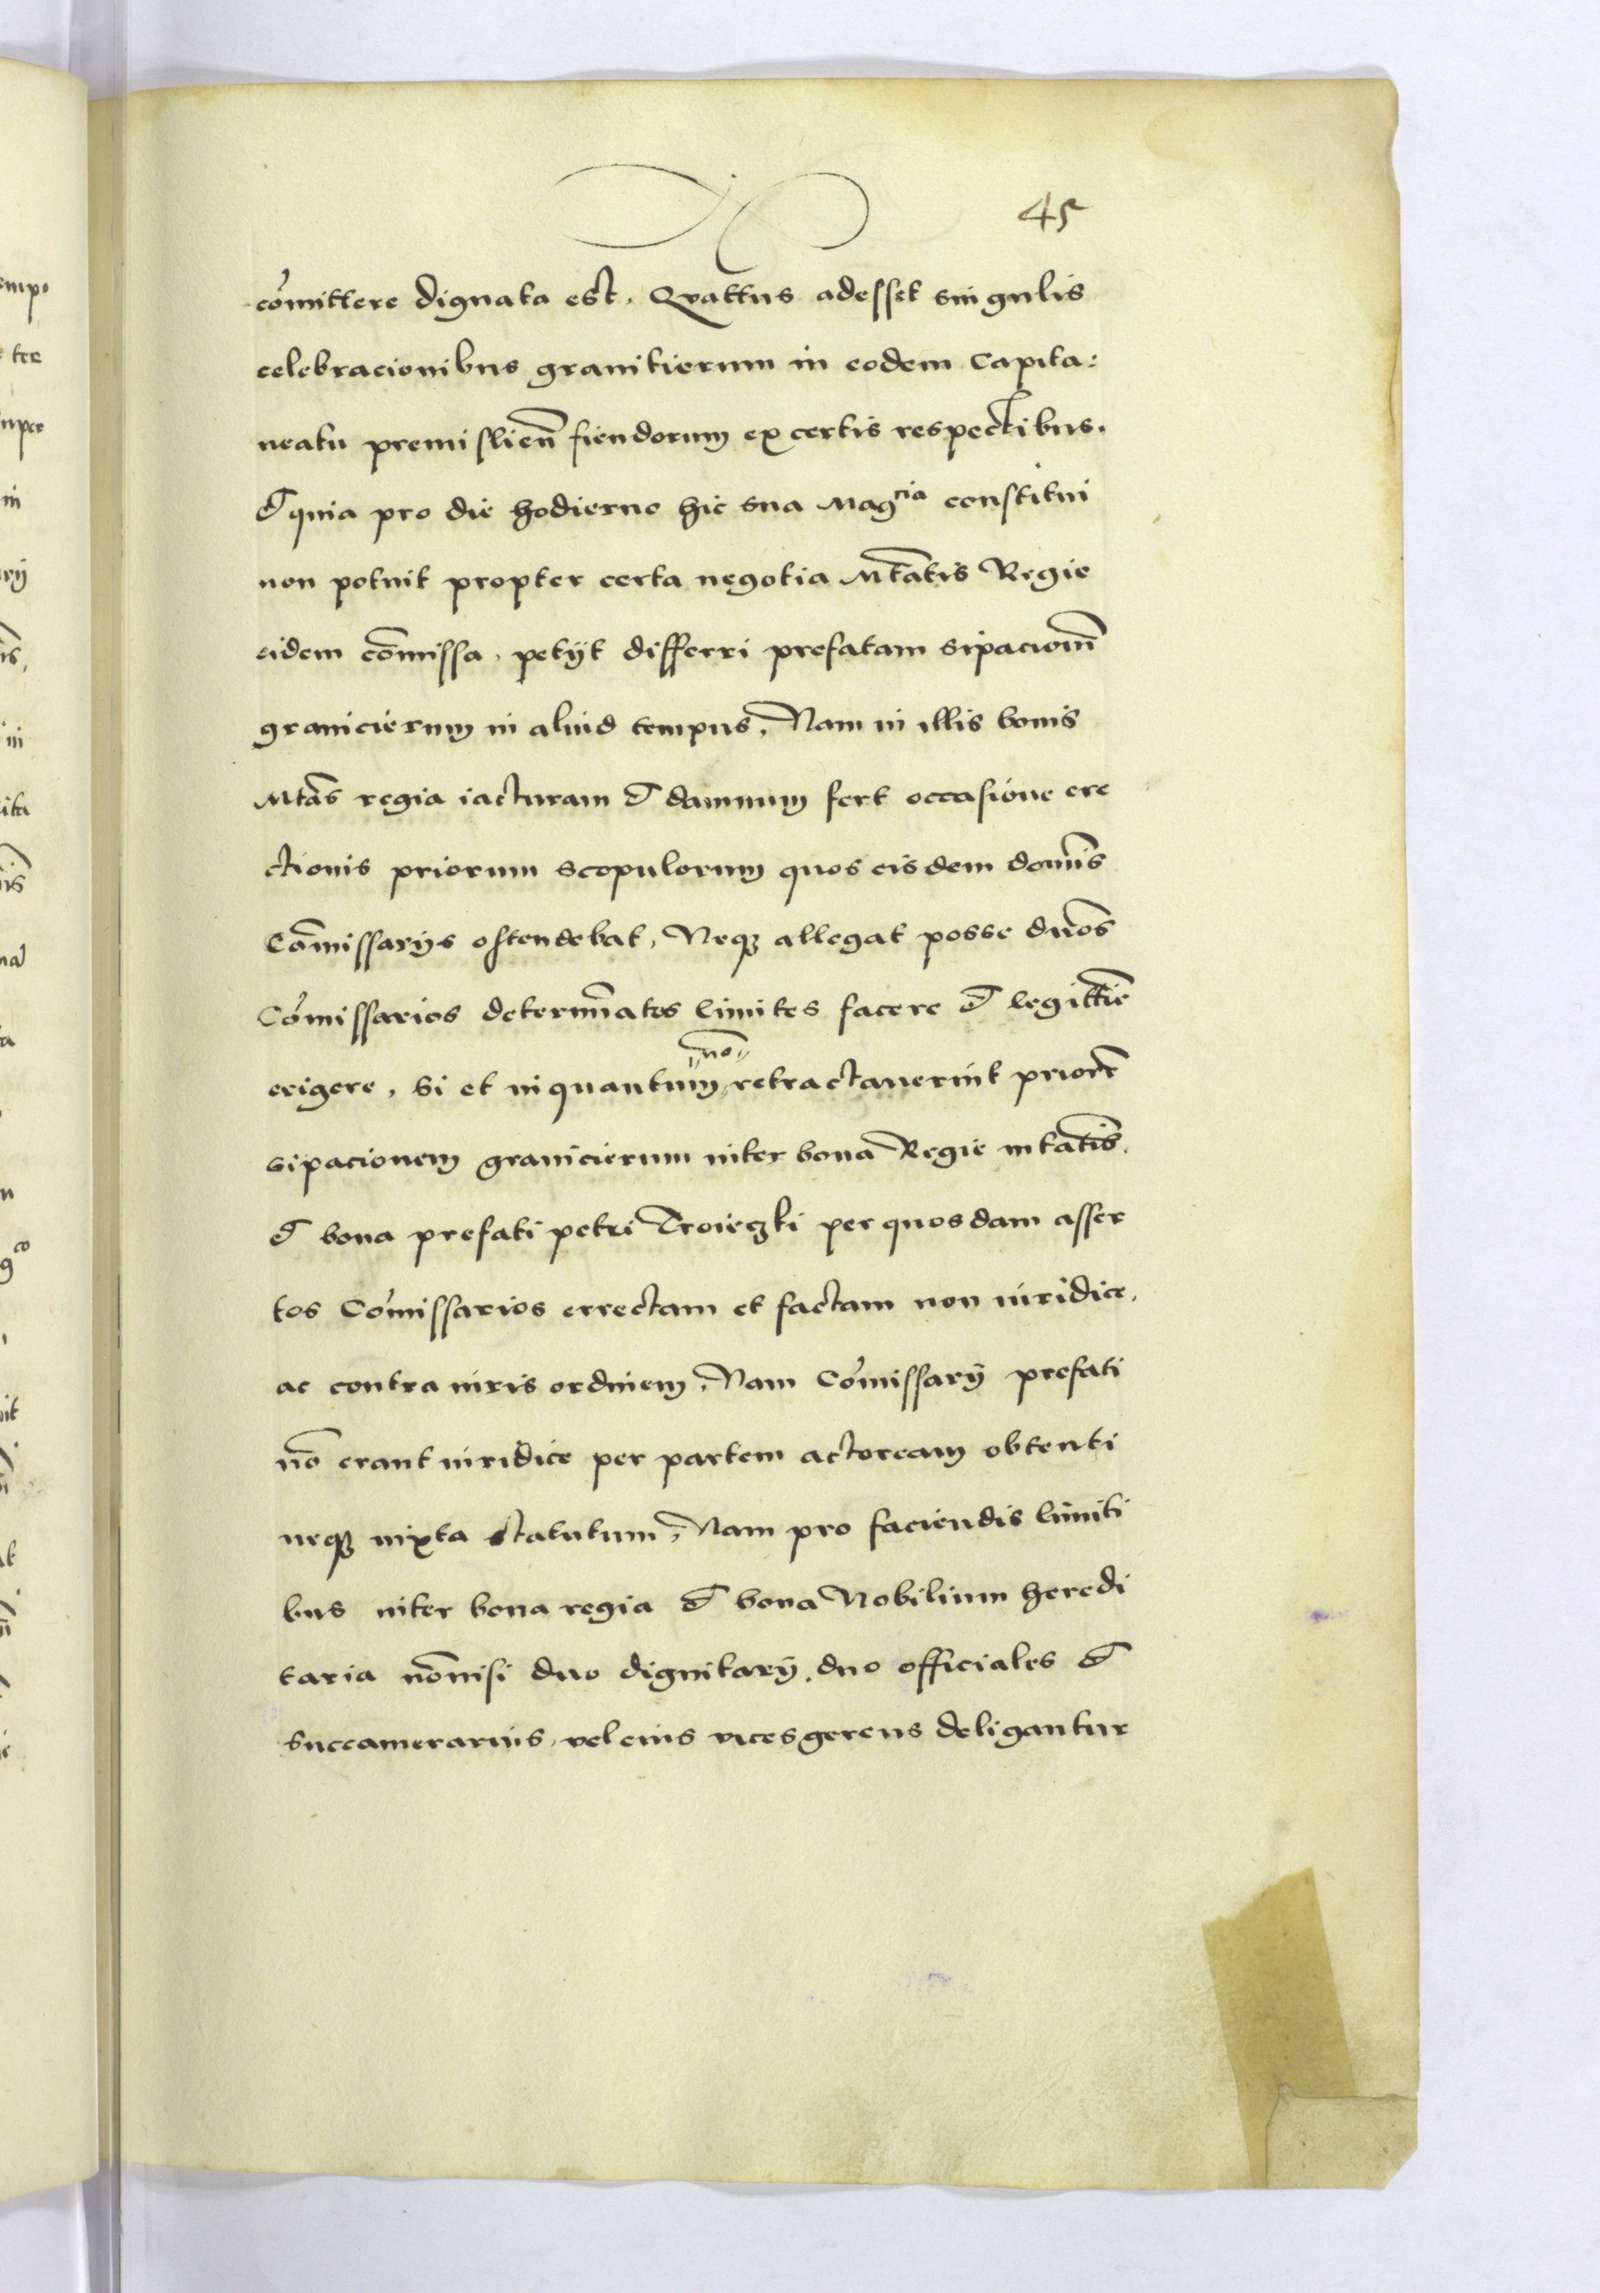 45
com̄ittere dignata est. Quattus adesset singulis
celebracionibus granitierum in eodem Capita:
neatu premislien̄ fiendorum ex certis respectibus.
Et quia pro die hodierno hic sua Magcia constitui
non potuit propter certa negotia Mtātis Regie
eidem com̄issa, petijt differri prefatam sipacionē
granicierum in aliud tempus, Nam in illis bonis
Mtās regia iacturam et damnum fert occasione ere
ctionis priorum scopulorum quos eisdem domīs
Com̄issarijs ostendebat, Neqz allegat posse dnōs
Com̄issarios determīatos limites facere et legittīe
erigere, si et inquantum nō retractauerint priorē
sipacionem granicierum inter bona Regie mtātis.
et bona prefati petri Troieczki per quosdam asser
tos Com̄issarios errectam et factam non iuridice,
ac contra iuris ordinem, Nam Com̄issarij prefati
nō erant iuridice per partem actoream obtenti
neqz iuxta statutum, Nam pro faciendis limiti
bus inter bona regia et bona Nobilium heredi
taria nōnisi duo dignitarij, duo officiales et
Succamerarius, vel eius vicesgerens deligantur